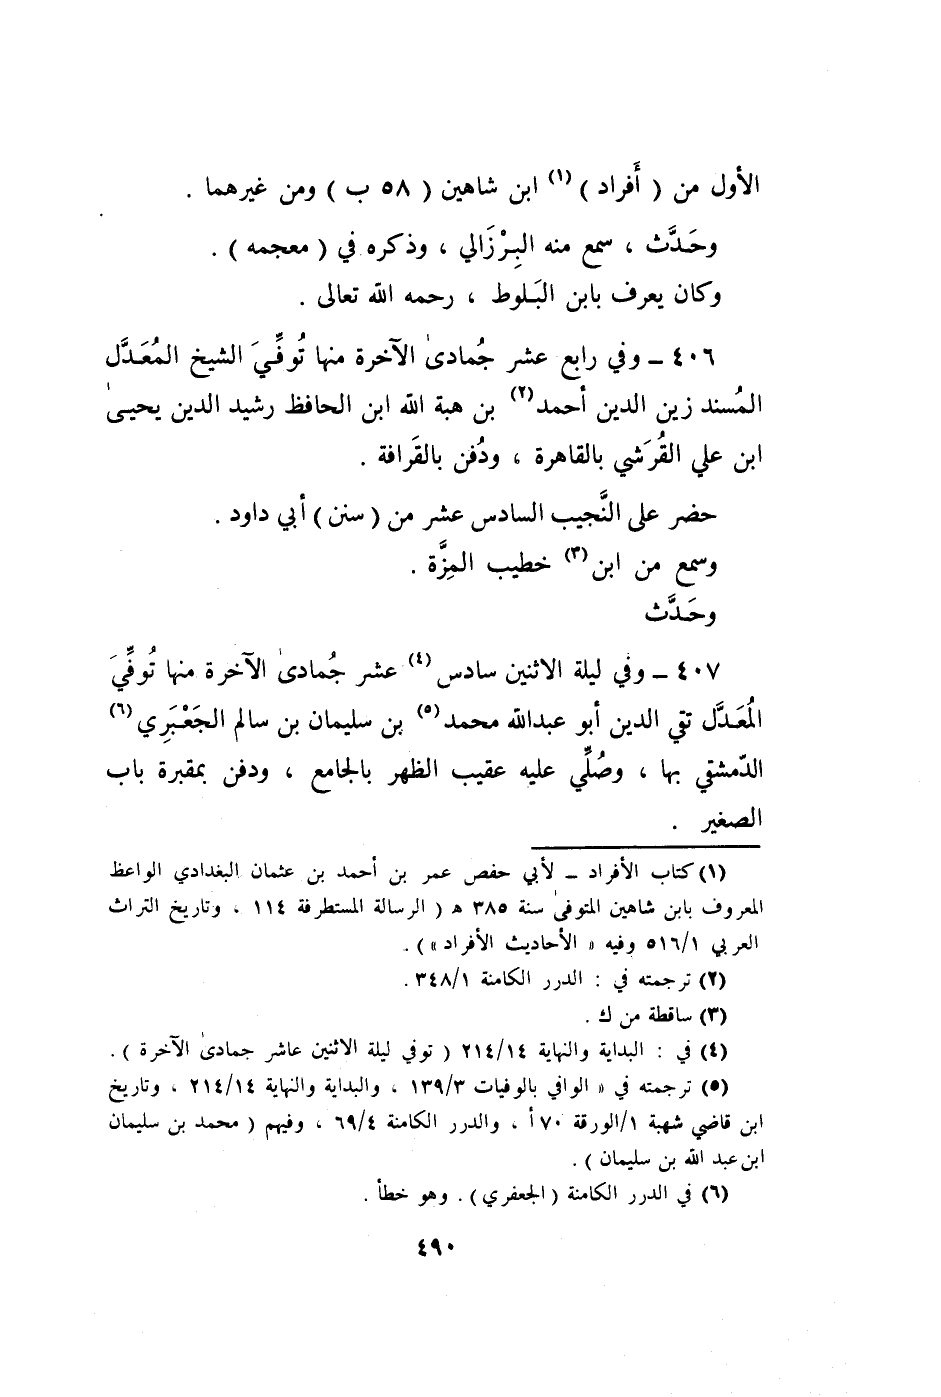 الأول من ( أَفراد )(١) ابن شاهين ( ٥٨ ب ) ومن غيرهما .
وحَدَّث ، سمع منه البِرْزَالي ، وذكره في ( معجمه ) .
وكان يعرف بابن البَلوط ، رحمه الله تعالى .
٤٠٦ ــ وفي رابع عشر جُمادىٰ الآخرة منها تُوفِّيَ الشيخ المُعَدَّل
المُسند زين الدين أحمد(٢) بن هبة الله ابن الحافظ رشيد الدين يحيىٰ
ابن علي القُرَشي بالقاهرة ، ودُفن بالقَرافة .
حضر على النَّجيب السادس عشر من ( سنن ) أبي داود .
وسمع من ابن(٣) خطيب المِزَّة .
وحَدَّث
٤٠٧ ــ وفي ليلة الاثنين سادس(٤) عشر جُمادىٰ الآخرة منها تُوفِّيَ
المُعَدَّل تقي الدين أبو عبدالله محمد(٥) بن سليمان بن سالم الجَعْبَرِي(٦)
الدّمشقي بها ، وصُلِّي عليه عقيب الظهر بالجامع ، ودفن بمقبرة باب
الصغير .
(١) كتاب الأفراد ــ لأبي حفص عمر بن أحمد بن عثمان البغدادي الواعظ
المعروف بابن شاهين المتوفىٰ سنة ٣٨٥ ه ( الرسالة المستطرفة ١١٤ ، وتاريخ التراث
العربي ٥١٦/١ وفيه « الأحاديث الأفراد » ) .
(٢) ترجمته في : الدرر الكامنة ٣٤٨/١ .
(٣) ساقطة من ك .
(٤) في : البداية والنهاية ٢١٤/١٤ ( توفي ليلة الاثنين عاشر جمادىٰ الآخرة ) .
(٥) ترجمته في « الوافي بالوفيات ١٣٩/٣ ، والبداية والنهاية ٢١٤/١٤ ، وتاريخ
ابن قاضي شهبة ١/الورقة ٧٠ أ ، والدرر الكامنة ٦٩/٤ ، وفيهم ( محمد بن سليمان
ابن عبد الله بن سليمان ) .
(٦) في الدرر الكامنة ( الجعفري ) . وهو خطأ .
٤٩٠